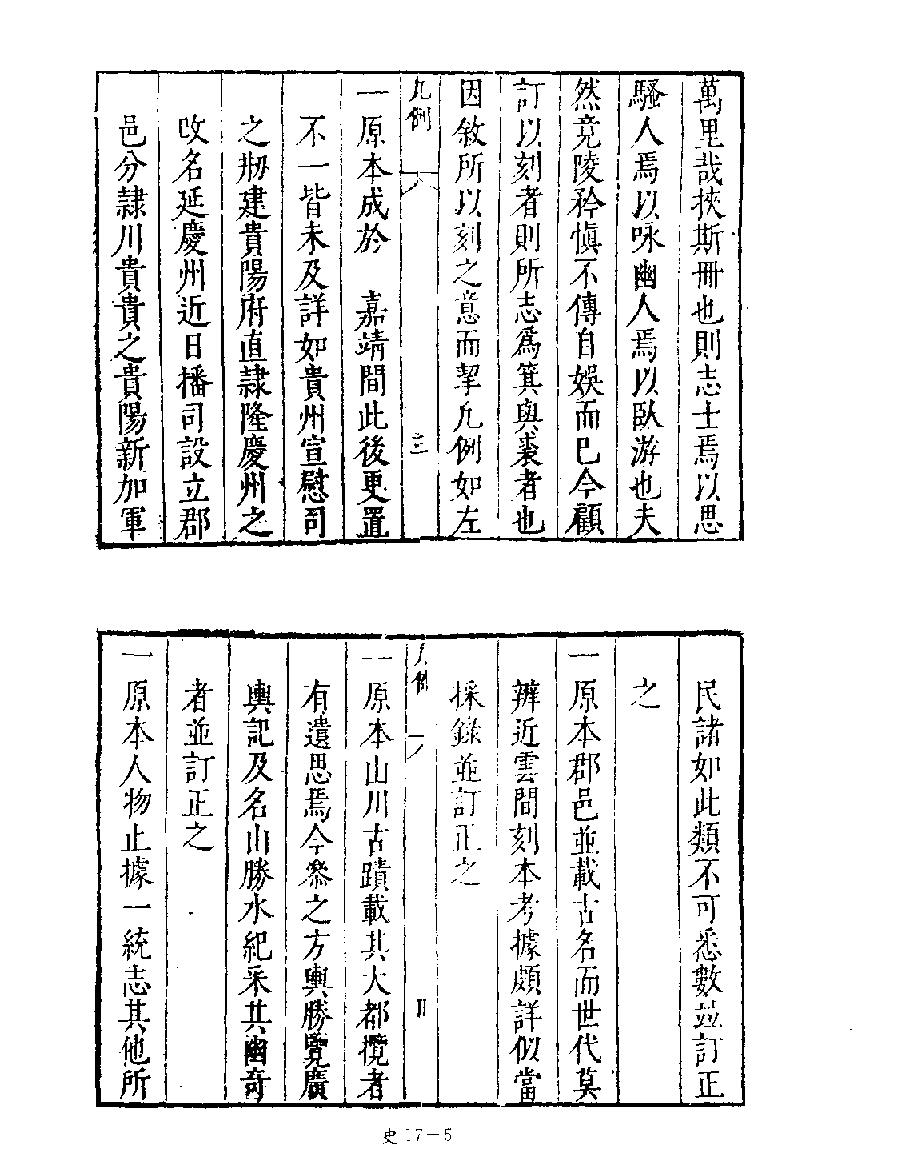 萬里哉挾斯冊也則志士焉以思
騷人焉以咏幽人焉以臥游也夫
然竟陵矜慎不傳自娛而已今顧
訂以刻者則所志爲箕與裘者也
因敘所以刻之意而挈凡例如左
凡例 三
一原本成於 嘉靖間此後更置
不一皆未及詳如貴州宣慰司
之刱建貴陽府直隸隆慶州之
改名延慶州近日播司設立郡
邑分隸川貴貴之貴陽新加軍
民諸如此類不可悉數並訂正
之
一原本郡邑並載古名而世代莫
辨近雲間刻本考據頗詳似當
採錄並訂正之
凡例
一原本山川古蹟載其大都攬者
有遺思焉今叅之方輿勝覽廣
輿記及名山勝水紀釆其幽奇
者並訂正之
一原本人物止據一統志其他所
史17-5